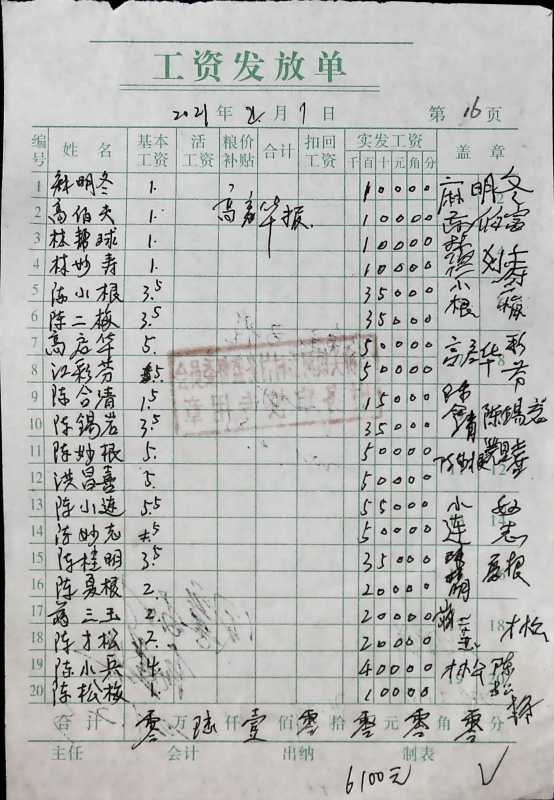 工资发放单
2021年 月1日 第16页
编号 姓名 基本工资 活工资 粮价补贴 合计 扣回工资 实发工资 千百十元角分 盖章
1 麻明冬 1. 10000 麻明冬
2 高伯夫 1. 高彦华报 10000
3 林 球 1. 10000
4 林妙寿 1. 10000
5 陈小根 3.5 35000 小根
6 陈二梅 3.5 35000 二梅
7 高彦华 5. 50000 高彦华
8 江彩芳 5 50000 彩芳
9 陈合清 1.5 15000 陈合清
10 陈锡岩 3.5 35000 陈锡岩
11 陈妙根 5. 50000 陈妙根
12 洪昌喜 5. 50000
13 陈小连 5.5 55000 小连
14 陈妙志 5 50000 妙志
15 陈桂明 3.5 35000 陈桂明
16 陈夏根 2. 20000 夏根
17 蒋三玉 2. 20000 蒋三玉
18 陈才松 2. 20000 才松
19 陈小兵 4. 40000
20 陈松梅 1. 10000 陈松梅
合计 零万陆仟壹佰零拾零元零角零分
主任 会计 出纳 制表
6100元